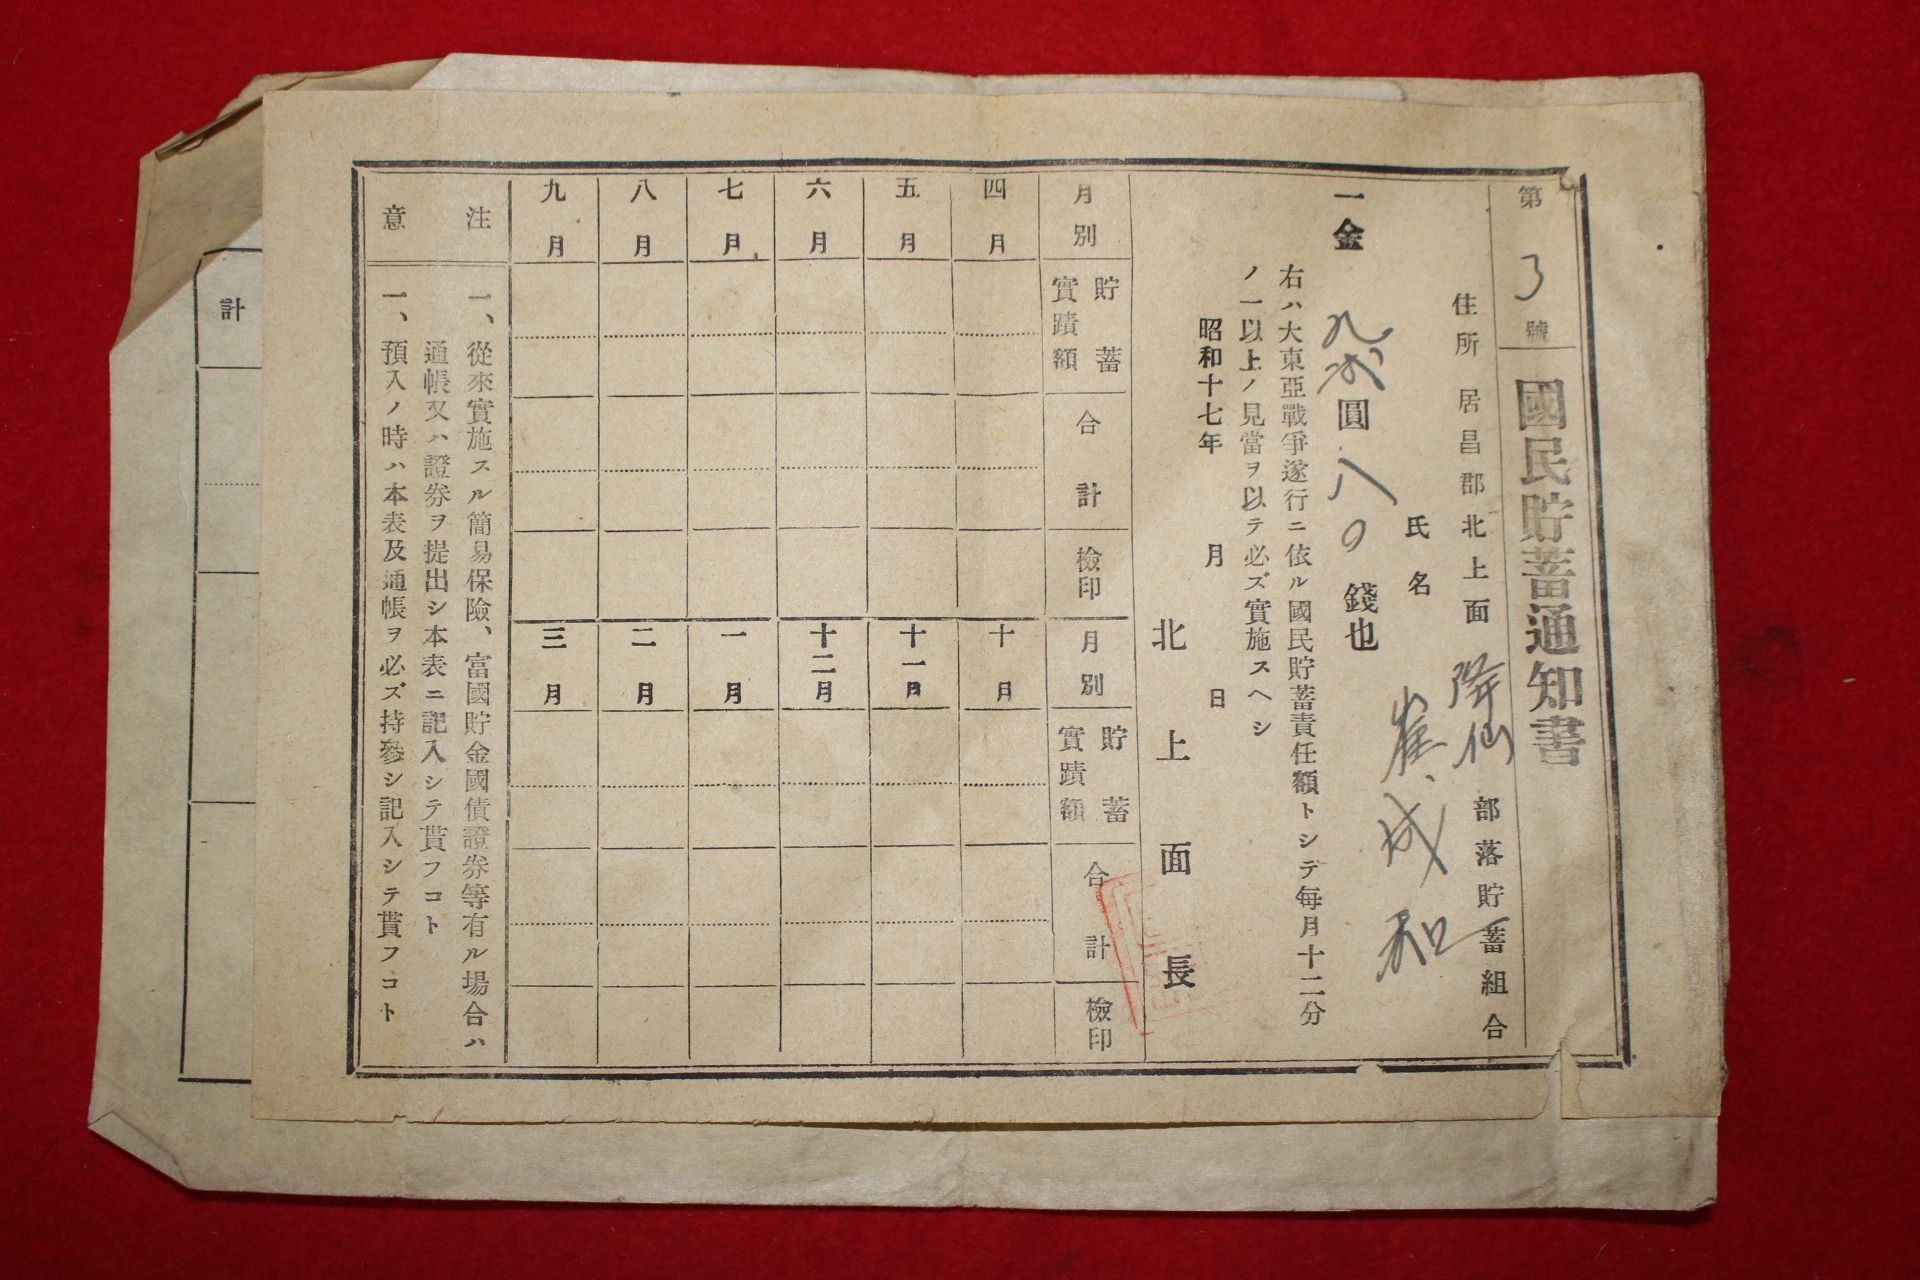 第 3 號 國民貯蓄通知書
住所 居昌郡北上面 降仙 部落貯蓄組合
氏名 崔成和
一金 九 圓 八〇 錢也
右ハ大東亞戰爭遂行ニ依ル國民貯蓄責任額トシデ每月十二分
ノ一以上ノ見當ヲ以テ必ズ實施スヘシ
昭和十七年 月 日
北上面長
月別 貯蓄實蹟額 合計 檢印 月別 貯蓄實蹟額 合計 檢印
四月 十月
五月 十一月
六月 十二月
七月 一月
八月 二月
九月 三月
注意
一、從來實施スル簡易保險、富國貯金國債證券等有ル場合ハ
通帳又ハ證券ヲ提出シ本表ニ記入シテ貰フコト
一、預入ノ時ハ本表及通帳ヲ必ズ持參シ記入シテ貰フコト
計